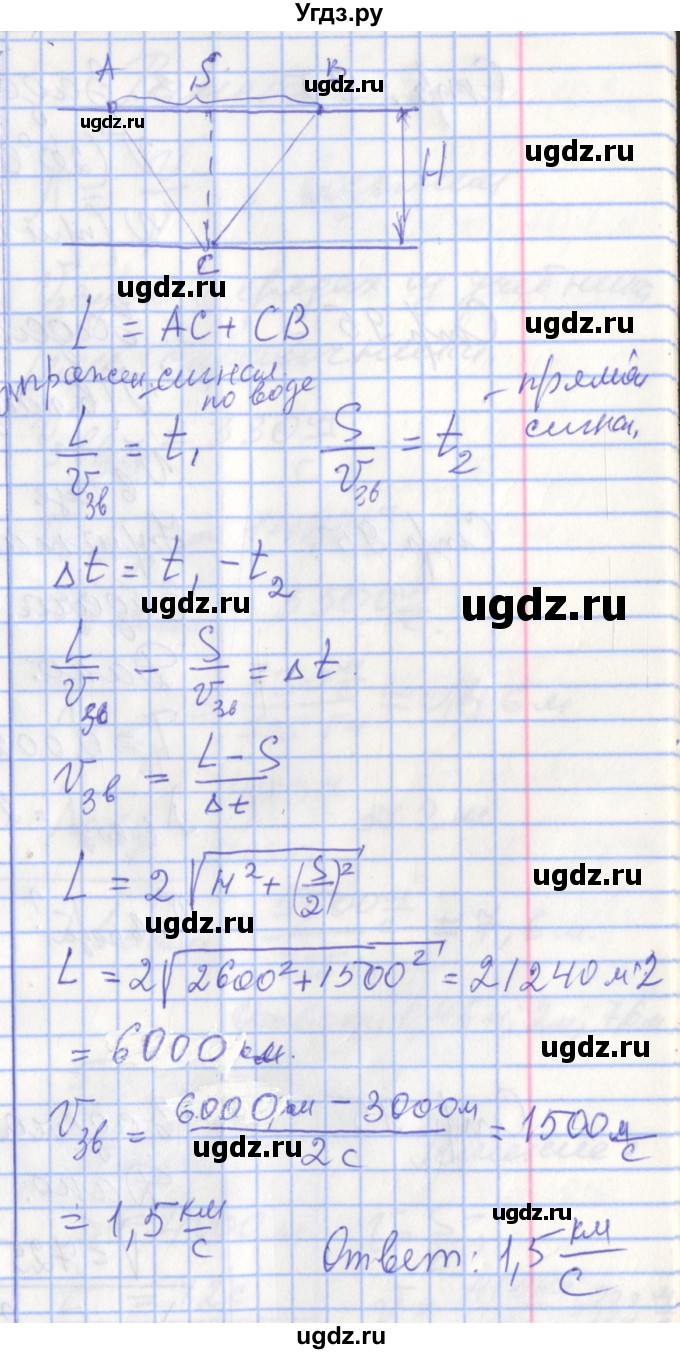 Угдз.ру
A S B
ugdz.ru
ugdz.ru
ugdz.ru
H
C
ugdz.ru
L = AC + CB
ugdz.ru
сигнал по воде
- прямой сигнал
L/v_зв = t₁ S/v_зв = t₂
Δt = t₁ - t₂
ugdz.ru
ugdz.ru
L/v_зв - S/v_зв = Δt
v_зв = (L - S)/Δt
L = 2√(H² + (S/2)²)
ugdz.ru
ugdz.ru
L = 2√(2600² + 1500²) =
= 6000 км.
ugdz.ru
v_зв = (6000 км - 3000 м)/2 с = 1500 м/с
ugdz.ru
= 1,5 км/с
ugdz.ru
Ответ: 1,5 км/с
ugdz.ru